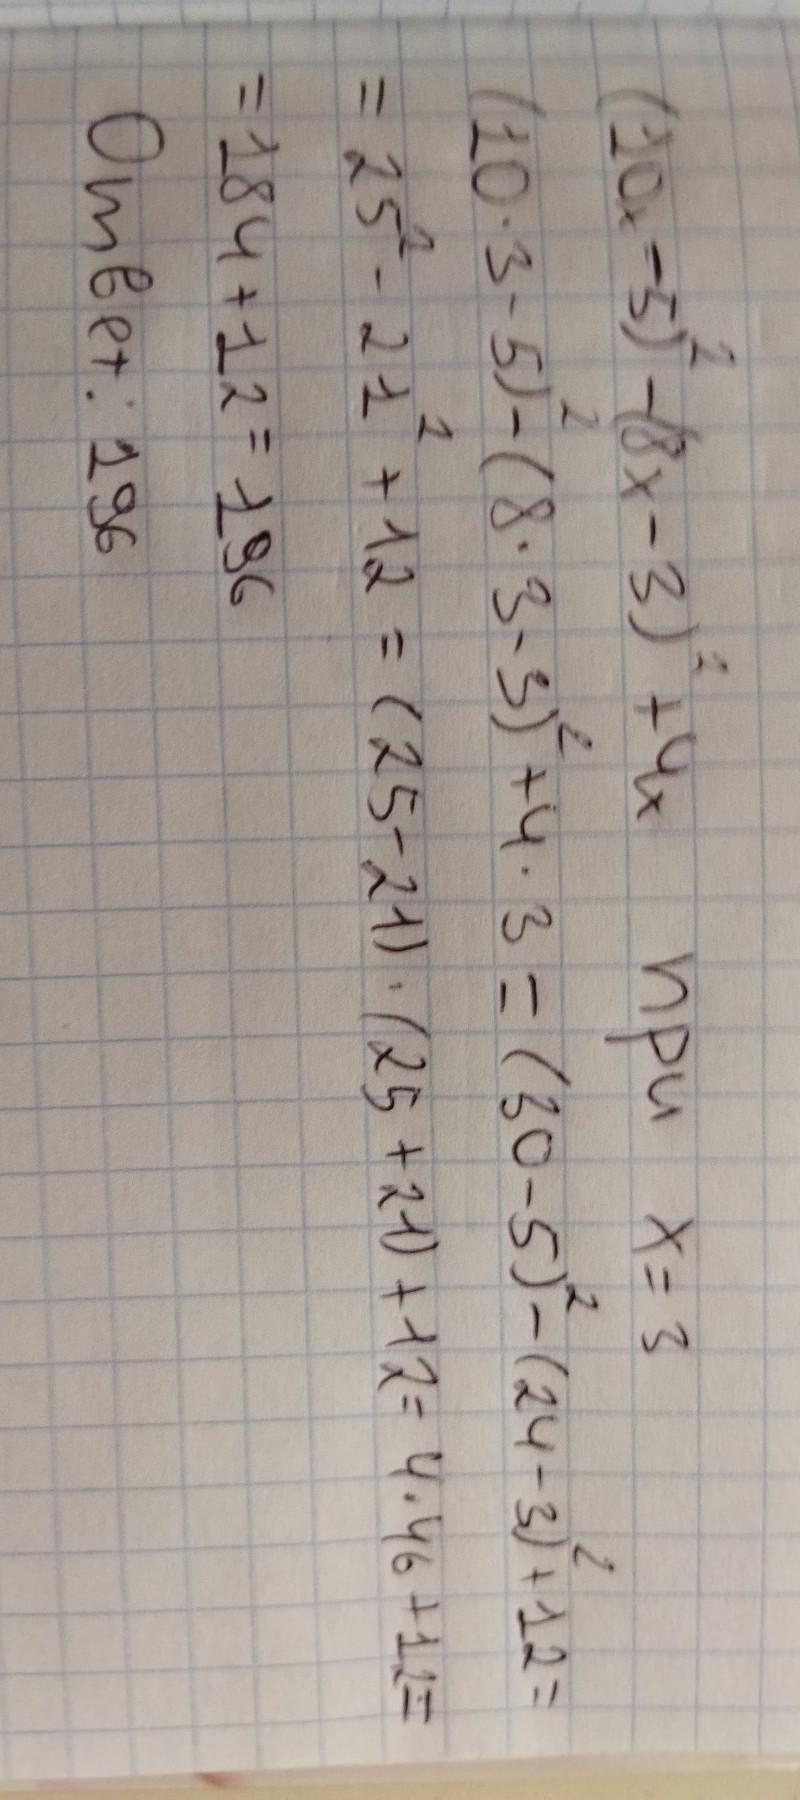 (10x-5)² - (8x-3)² + 4x при x=3
(10·3-5)² - (8·3-3)² + 4·3 = (30-5)² - (24-3)² + 12 =
= 25² - 21² + 12 = (25-21)·(25+21) + 12 = 4·46 + 12 =
= 184 + 12 = 196
Ответ: 196